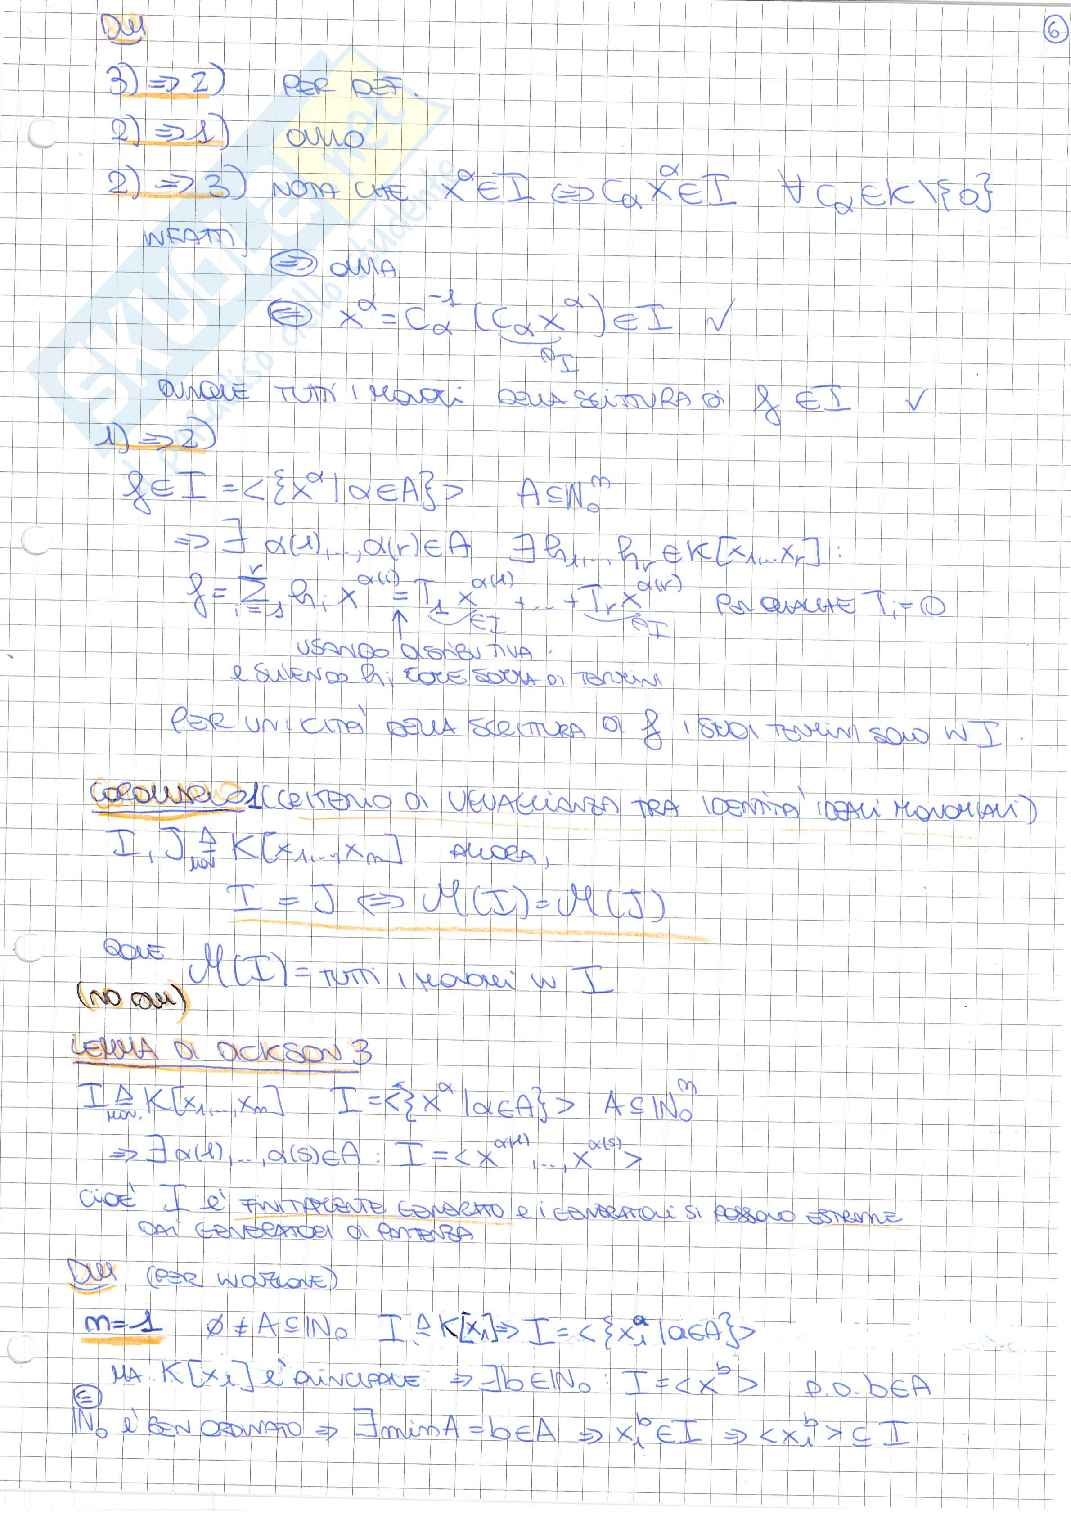 DIM
6
3) => 2) PER DEF.
2) => 1) OVVIO
2) => 3) NOTA CHE x^α ∈ I <=> C_α x^α ∈ I ∀ C_α ∈ K\{0}
INFATTI
=> OVVIA
<= x^α = C_α^{-1} (C_α x^α) ∈ I ✓
∈ I
DUNQUE TUTTI I MONOMI DELLA SCRITTURA DI f ∈ I ✓
1) => 2)
f ∈ I = <{x^α | α∈A}> A ⊆ ℕ_0^n
=> ∃ α(1),...,α(r) ∈ A ∃ h_1,... h_r ∈ K[x_1...x_r] :
f = Σ_{i=1}^r h_i x^{α(i)} = T_1 x^{α(1)} + ... + T_r x^{α(r)} PER QUALCHE T_i = 0
∈ I ∈ I
USANDO DISTRIBUTIVA
e SCRIVENDO h_i COME SOMMA DI TERMINI
PER UNICITÀ DELLA SCRITTURA DI f I SUOI TERMINI SONO IN I.
COROLLARIO 1 (CRITERIO DI UGUAGLIANZA TRA IDENTITÀ IDEALI MONOMIALI)
I, J ⊴_{mon} K[x_1,...,x_n] ALLORA,
I = J <=> M(I) = M(J)
DOVE M(I) = TUTTI I MONOMI IN I
(NO DIM)
LEMMA DI DICKSON 3
I ⊴_{mon.} K[x_1,...,x_n] I = <{x^α | α∈A}> A ⊆ ℕ_0^n
=> ∃ α(1),...,α(s) ∈ A : I = <x^{α(1)},...,x^{α(s)}>
CIOÈ I è FINITAMENTE GENERATO e i GENERATORI SI POSSONO ESTRARRE
DAI GENERATORI DI PARTENZA
DIM (PER INDUZIONE)
n=1 ∅ ≠ A ⊆ ℕ_0 I ⊴ K[x_1] => I = <{x_1^a | a∈A}>
MA K[x_1] è PRINCIPALE => ∃ b ∈ ℕ_0 : I = <x^b> P.D. b∈A
⊆
ℕ_0 è BEN ORDINATO => ∃ min A = b ∈ A => x_1^b ∈ I => <x_1^b> ⊆ I